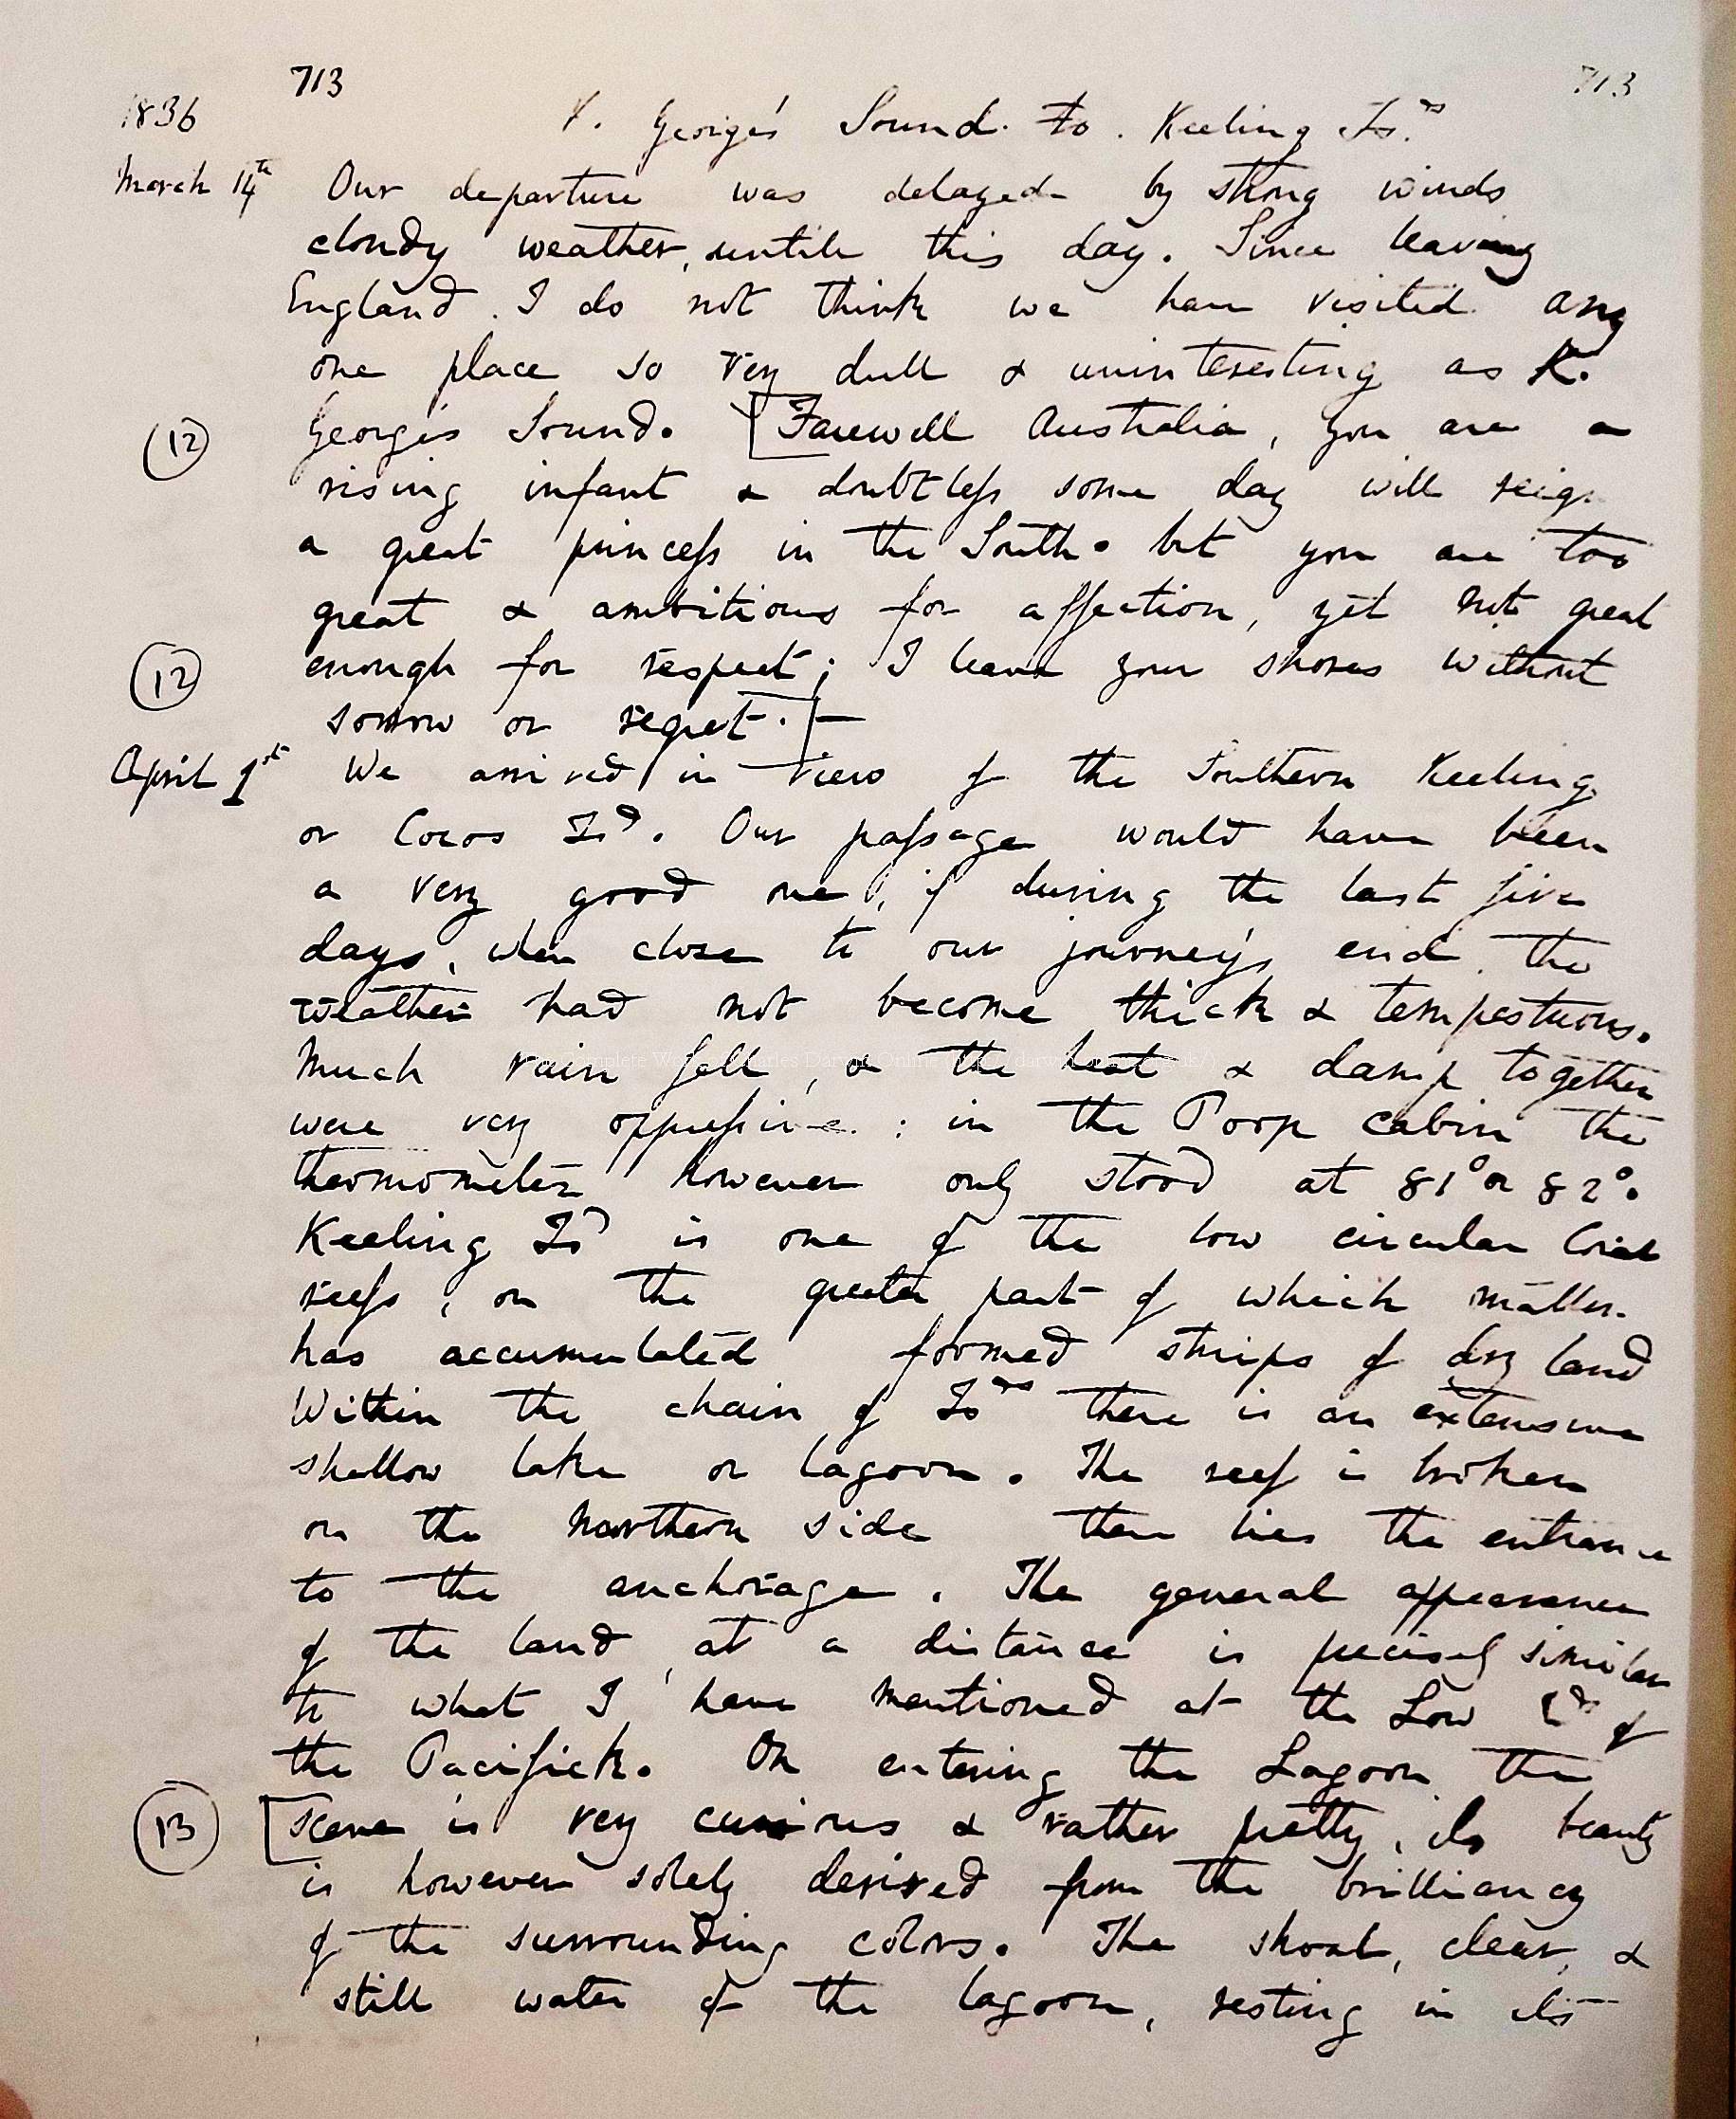 713 713
1836 K. George's Sound. to. Keeling Isds
March 14th Our departure was delayed by strong winds
cloudy weather, untill this day. Since leaving
England. I do not think we have visited any
one place so very dull & uninteresting as K.
(12) George's Sound. [Farewell Australia, you are a
rising infant & doubtless some day will reign
a great princess in the South. but you are too
great & ambitious for affection, yet not great
(12) enough for respect; I leave your shores without
sorrow or regret.]—
April 1st We arrived in view of the Southern Keeling
or Cocos Isd. Our passage would have been
a very good one, if during the last five
days, when close to our journey's end, the
weather had not become thick & tempestuous.
Much rain fell, & the heat & damp together
were very oppressive: in the Poop cabin the
thermometer however only stood at 81° or 82°.
Keeling Isd is one of the low circular Coral
reefs, on the greater part of which matter
has accumulated formed strips of dry land
Within the chain of Isds there is an extensive
shallow lake or lagoon. The reef is broken
on the Northern side there lies the entrance
to the anchorage. The general appearance
of the land, at a distance is precisely similar
to what I have mentioned at the Low Ids of
the Pacifick. On entering the Lagoon the
(13) [scene is very curious & rather pretty, its beauty
is however solely derived from the brilliancy
of the surrounding colors. The shoal, clear, &
still water of the lagoon, resting in its